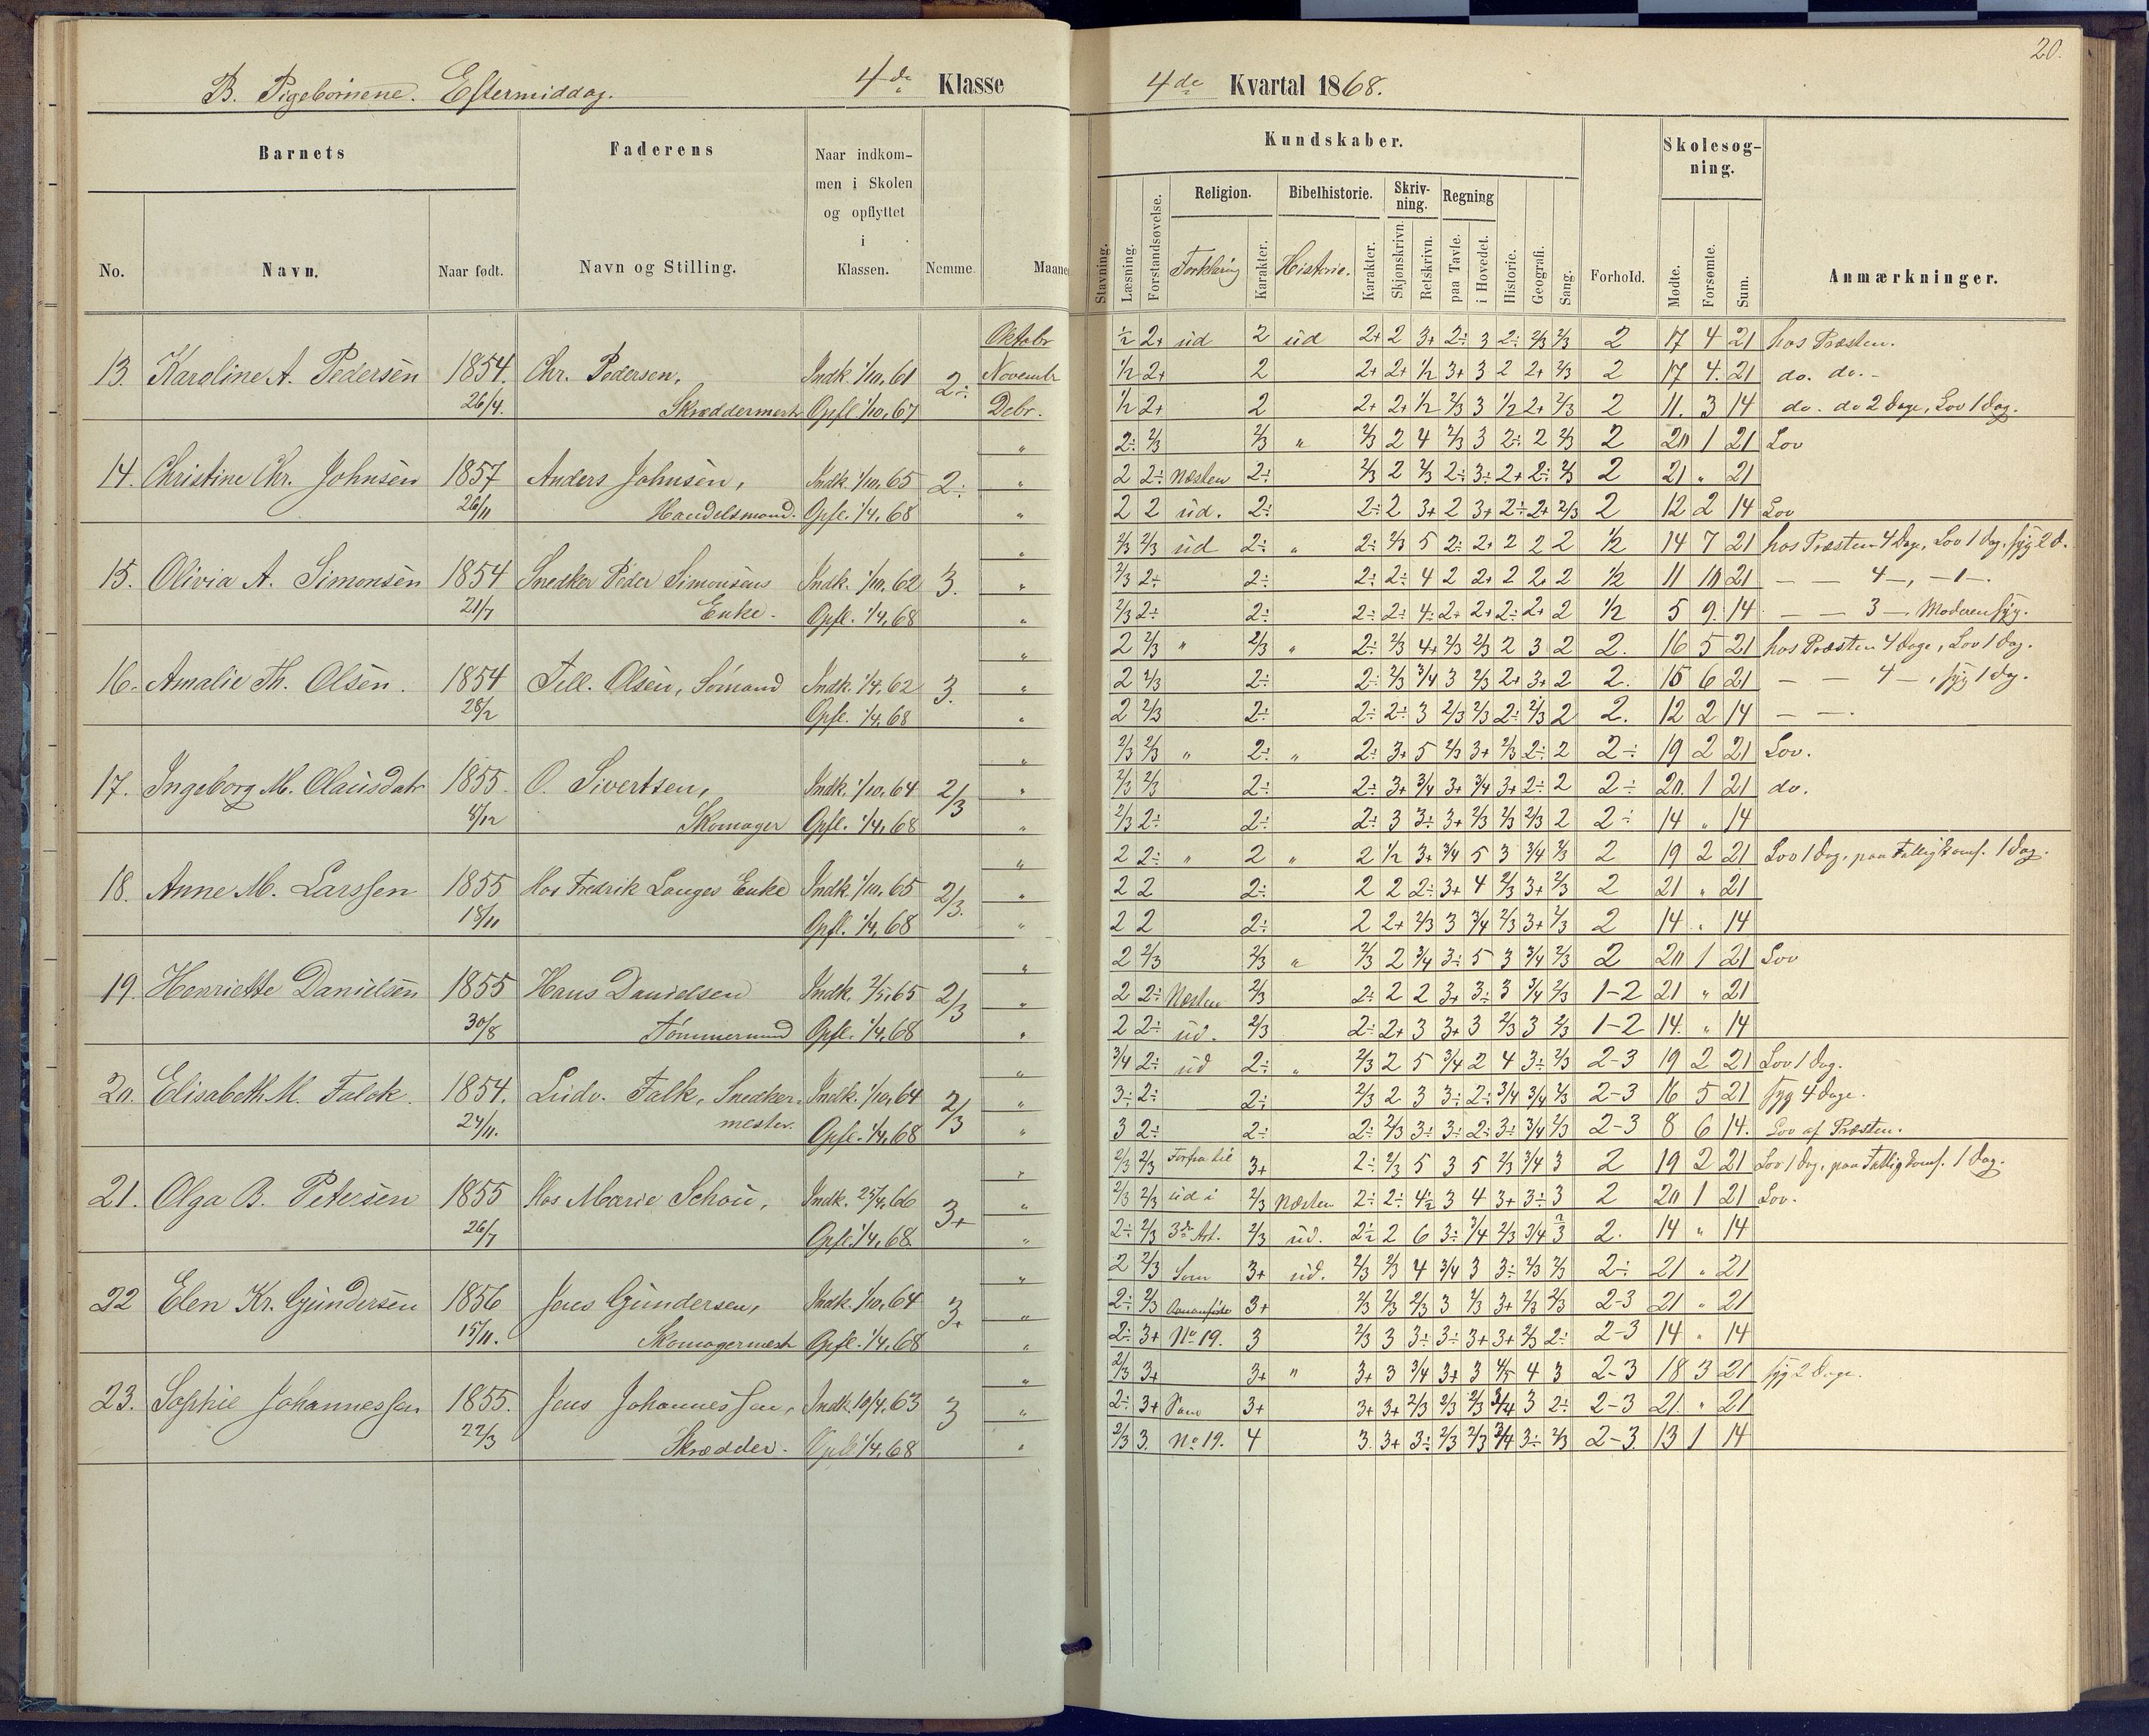 20.
B. Pigebørnene. Eftermiddag. 4de Klasse
4de Kvartal 1868.
Barnets
Faderens
Naar indkom-
men i Skolen
og opflyttet
i
Klassen.
No. Navn. Naar født. Navn og Stilling. Nemme Maane
Kundskaber.
Skolesøg-
ning.
Religion. Bibelhistorie. Skriv-
ning. Regning
Stavning. Læsning. Forstandsøvelse. Forklaring Karakter. Historie. Karakter. Skjønskrivn. Retskrivn. paa Tavle. i Hovedet. Historie. Geografi. Sang. Forhold. Mødte. Forsømte. Sum. Anmærkninger.
Oktobr ½ 2+ ud 2 ud 2+ 2 3+ 2÷ 3 2÷ 2/3 2/3 2 17 4 21 hos Præsten.
13. Karoline A. Pedersen 1854. Chr. Pedersen, Indk. 1/10, 61 2÷ Novembr ½ 2+ 2 2+ 2+ ½ 3+ 3 2 2+ 2/3 2 17 4. 21 do. do.
26/4. Skræddermestr Opfl. 1/10, 67 Debr. ½ 2+ 2 2+ 2+ ½ 2/3 3 ½ 2+ 2/3 2 11. 3 14 do. do 2 Dage, Lov 1 Dag.
" 2÷ 2/3 2/3 " 2/3 2 4 2/3 3 2÷ 2 2/3 2 20 1 21 Lov
14. Christine Chr. Johnsen 1857 Anders Johnsen, Indk. 1/10, 65 2÷ " 2 2÷ Næsten 2÷ 2/3 2 2/3 2÷ 3÷ 2+ 2÷ 2/3 2 21 " 21
26/11 Handelsmand. Opfl. 1/4, 68 " 2 2 ud. 2÷ 2÷ 2 3+ 2 3+ 2÷ 2+ 2/3 2 12 2 14 Lov
" 2/3 2/3 ud 2÷ " 2÷ 2/3 5 2÷ 2+ 2 2 2 ½ 14 7 21 hos Præsten 4 Dage, Lov 1 Dag, syg 2 D.
15. Olivia A. Simonsen 1854 Snedker Peder Simonsens Indk. 1/10, 62 3. " 2/3 2÷ 2÷ 2÷ 2÷ 4 2 2+ 2 2+ 2 ½ 11 10 21 — — 4 —, — 1 —.
21/7 Enke. Opfl. 1/4, 68 " 2/3 2÷ 2÷ 2÷ 2÷ 4÷ 2+ 2+ 2÷ 2+ 2 ½ 5 9. 14 — — 3 — Moderen syg.
" 2 2/3 " 2/3 " 2÷ 2/3 4+ 2/3 2/3 2 3 2 2. 16 5 21 hos Præsten 4 Dage, Lov 1 Dag.
16. Amalie Th. Olsen. 1854 Tell. Olsen, Sømand Indk. 1/4, 62 3. " 2 2/3 2÷ 2÷ 2/3 3/4 3 2/3 2+ 3+ 2 2. 15 6 21 — — 4 —, syg 1 Dag.
28/2 Opfl. 1/4, 68 " 2 2/3 2÷ 2÷ 3 2/3 2/3 2÷ 2/3 2 2. 12 2 14 — —.
" 2/3 2/3 " 2÷ " 2÷ 3+ 5 2/3 3+ 2/3 2÷ 2 2÷ 19 2 21 Lov.
17. Ingeborg M. Olausdatr 1855. O. Sivertsen, Indk. 1/10, 64 2/3 " 2/3 2/3 2÷ 2÷ 3+ 3/4 3+ 3/4 3+ 2÷ 2 2÷ 20. 1 21 do.
8/12 Skomager Opfl. 1/4, 68 " 2/3 2÷ 2÷ 2÷ 3 3÷ 3+ 2/3 2/3 2/3 2 2÷ 14 " 14
" 2 2÷ " 2 " 2 ½ 3+ 3/4 5 3 3/4 2/3 2 19 2 21 Lov 1 Dag, paa Fattigkoms. 1 Dag.
18. Anne M. Larssen 1855 Hos Fredrik Langes Enke Indk. 1/10, 65 2/3. " 2 2 2÷ 2 2 2÷ 3+ 4 2/3 3+ 2/3 2 21 " 21
18/11 Opfl. 1/4, 68 " 2 2 2÷ 2 2+ 2/3 3 3/4 2/3 3+ 2/3 2 14 " 14
" 2 2/3 2/3 " 2/3 2 3/4 3÷ 5 3 3/4 2/3 2 20 1 21 Lov
19. Henriette Danielsen 1855 Hans Danielsen Indk. 2/5, 65 2/3 " 2 2÷ Næsten 2/3 2÷ 2 2 3+ 3÷ 3 3/4 2/3 1-2 21 " 21
30/8 Tømmermand Opfl. 1/4, 68 " 2 2÷ ud. 2/3 2÷ 2+ 3 3+ 3 2/3 3 2/3 1-2 14. " 14
" 3/4 2÷ ud 2÷ " 2/3 2 5 3/4 2 4 3÷ 2/3 2-3 19 2 21 Lov 1 Dag.
20. Elisabeth M. Falck. 1854. Ludv. Falk, Snedker- Indk. 1/10, 64 2/3 " 3÷ 2÷ 2÷ 2/3 2 3 3÷ 2÷ 3/4 3/4 2/3 2-3 16 5 21 syg 4 Dage.
24/11. mester. Opfl. 1/4, 68 " 3 2÷ 2÷ 2÷ 2/3 3÷ 3÷ 2÷ 3÷ 3/4 2/3 2-3 8 6 14. Lov af Præsten.
" 2/3 2/3 Forfra til 3+ 2÷ 2/3 5 3 5 2/3 3/4 3 2 19 2 21 Lov 1 Dag, paa Fattigkoms. 1 Dag.
21. Olga B. Petersen 1855 Hos Marie Schou, Indk. 25/4, 66 3+ " 2/3 2/3 ud i 2/3 Næsten 2÷ 2÷ 4½ 3 4 3+ 3÷ 3 2 20 1 21 Lov.
26/7 Opfl. 1/4, 68. " 2÷ 2/3 3de Art. 2/3 ud. 2÷ 2 6 3÷ 3/4 2/3 3/4 2/3 2. 14 " 14
" 2 2/3 Som 3+ ud. 2/3 2/3 4 3/4 3 3÷ 2/3 2/3 2÷ 21 " 21
22 Elen Kr. Gundersen 1856 Jens Gundersen, Indk. 1/10, 64 3+ " 2÷ 2/3 3+ 2/3 2/3 2/3 3 2/3 3+ 2/3 2/3 2-3 21 " 21
15/11. Skomagermestr Opfl. 1/4, 68 " 2÷ 3+ No 19. 3 2/3 3 3÷ 3÷ 3+ 3+ 2/3 2÷ 2-3 14 " 14
" 2/3 3+ 3+ " 3+ 3 3/4 3+ 3 4/5 4 3 2-3 18 3 21 syg 2 Dage.
23. Sophie Johannessen 1855. Jens Johannessen, Indk. 10/4, 63 3 " 2÷ 3+ Som 3+ 3+ 3+ 2/3 2/3 2/3 3/4 3 2÷ 2-3 21. " 21
22/3 Skrædder. Opfl. 1/4, 68 " 2/3 3. No 19. 4 3. 3+ 3÷ 2/3 2/3 3/4 3÷ 2/3 2-3. 13 1 14